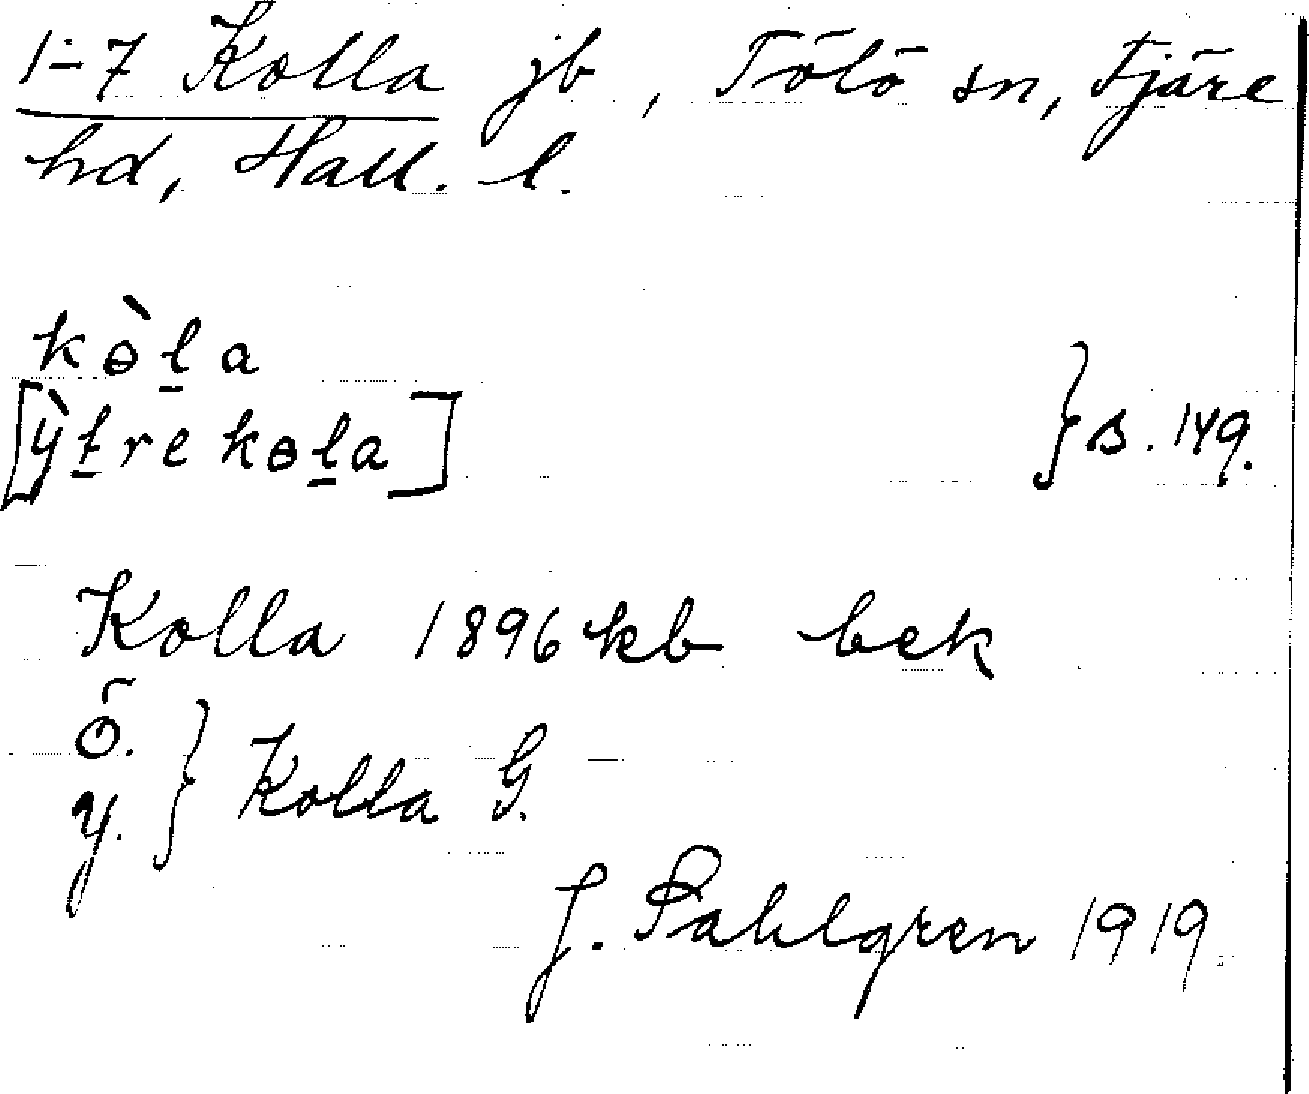 1-7 Kolla jb, Tölö sn, Fjäre
hd, Hall. l.
kɵ̀l̠a
[ỳt̠re kɵl̠a] } s. 149.
Kolla 1896 kb bek
ö.
y. } Kolla G.
J. Sahlgren 1919.